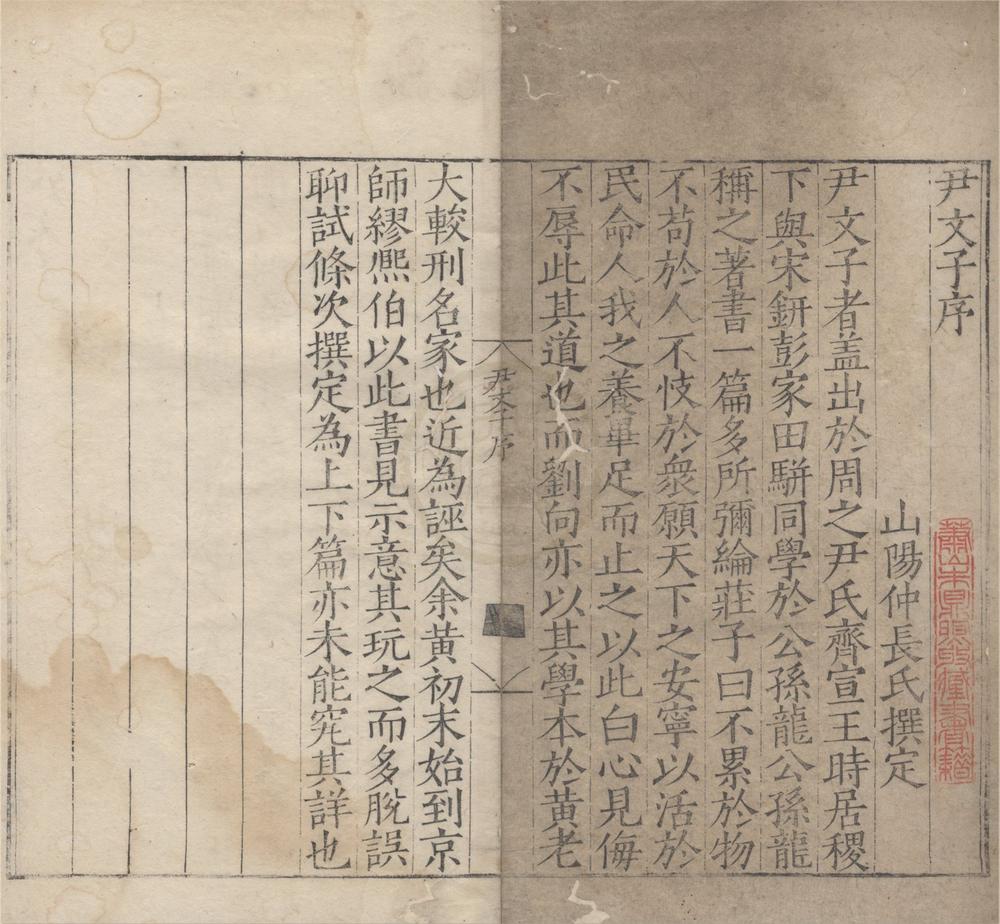 尹文子序
山陽仲長氏撰定
尹文子者盖出於周之尹氏齊宣王時居稷
下與宋鈃彭家田駢同學於公孫龍公孫龍
稱之著書一篇多所彌綸莊子曰不累於物
不苟於人不忮於衆願天下之安寧以活於
民命人我之養畢足而止之以此白心見侮
不辱此其道也而劉向亦以其學本於黄老
尹文子序
大較刑名家也近為誣矣余黄初末始到京
師繆熈伯以此書見示意其玩之而多脫誤
聊試條次撰定為上下篇亦未能究其詳也